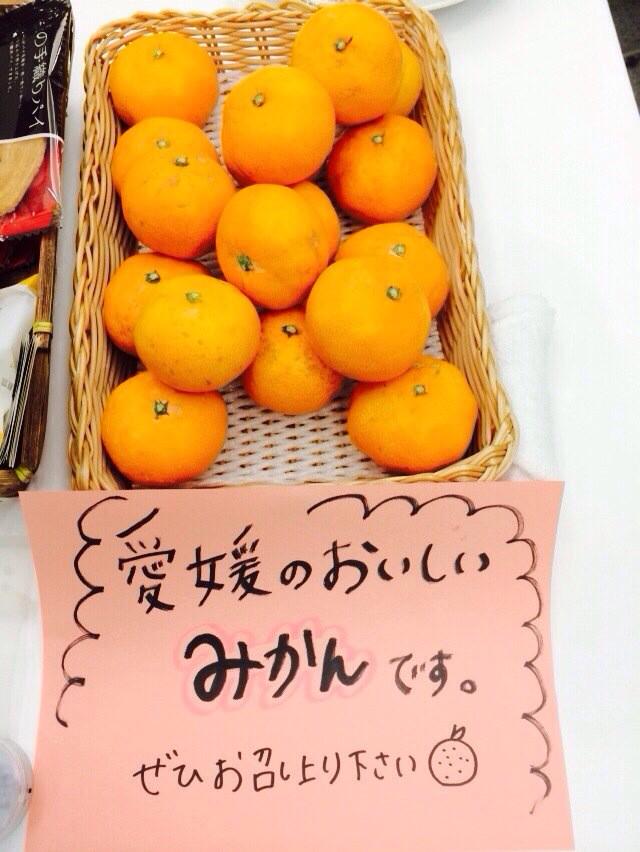 の手織りパイ
愛媛のおいしい
みかんです。
ぜひお召し上り下さい